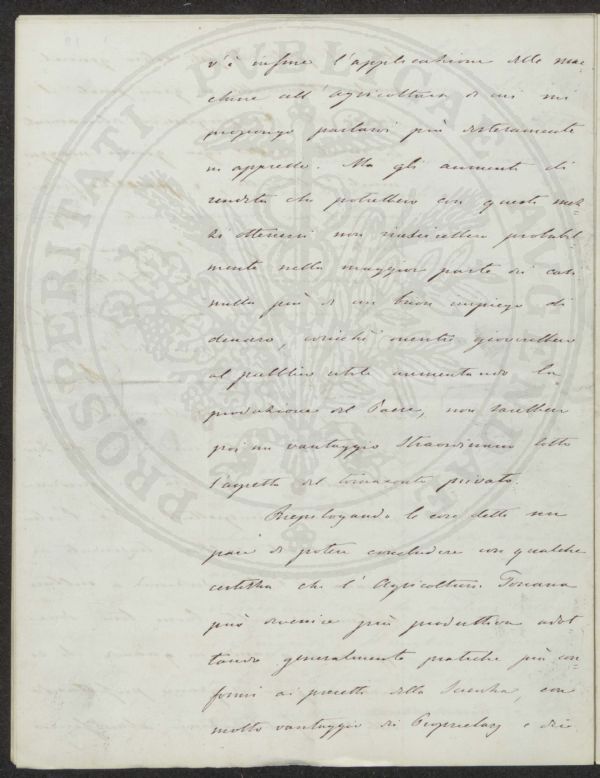 v'è infine l'applicazione delle mac
chine all'agricoltura di cui mi
propongo parlarvi più distesamente
in appresso. Ma gli aumenti di
rendita che potrebbero con questi mez=
zi ottenersi non riuscirebbero probabil
mente nella maggior parte dei casi
nulla più di un buon impiego di
denaro, cosicchè mentre gioverebbero
al pubblico utile aumentando la
produzione del Paese, non sarebbero
poi un vantaggio straordinario sotto
l'aspetto del tornaconto privato.
Riepilogando le cose dette mi
pare di potere concludere con qualche
certezza che l'Agricoltura Toscana
può divenire più produttiva adot
tando generalmente pratiche più con
formi ai precetti della Scienza, con
molto vantaggio dei Proprietarj e dei
PROSPERITATI PUBLICAE AUGENDAE